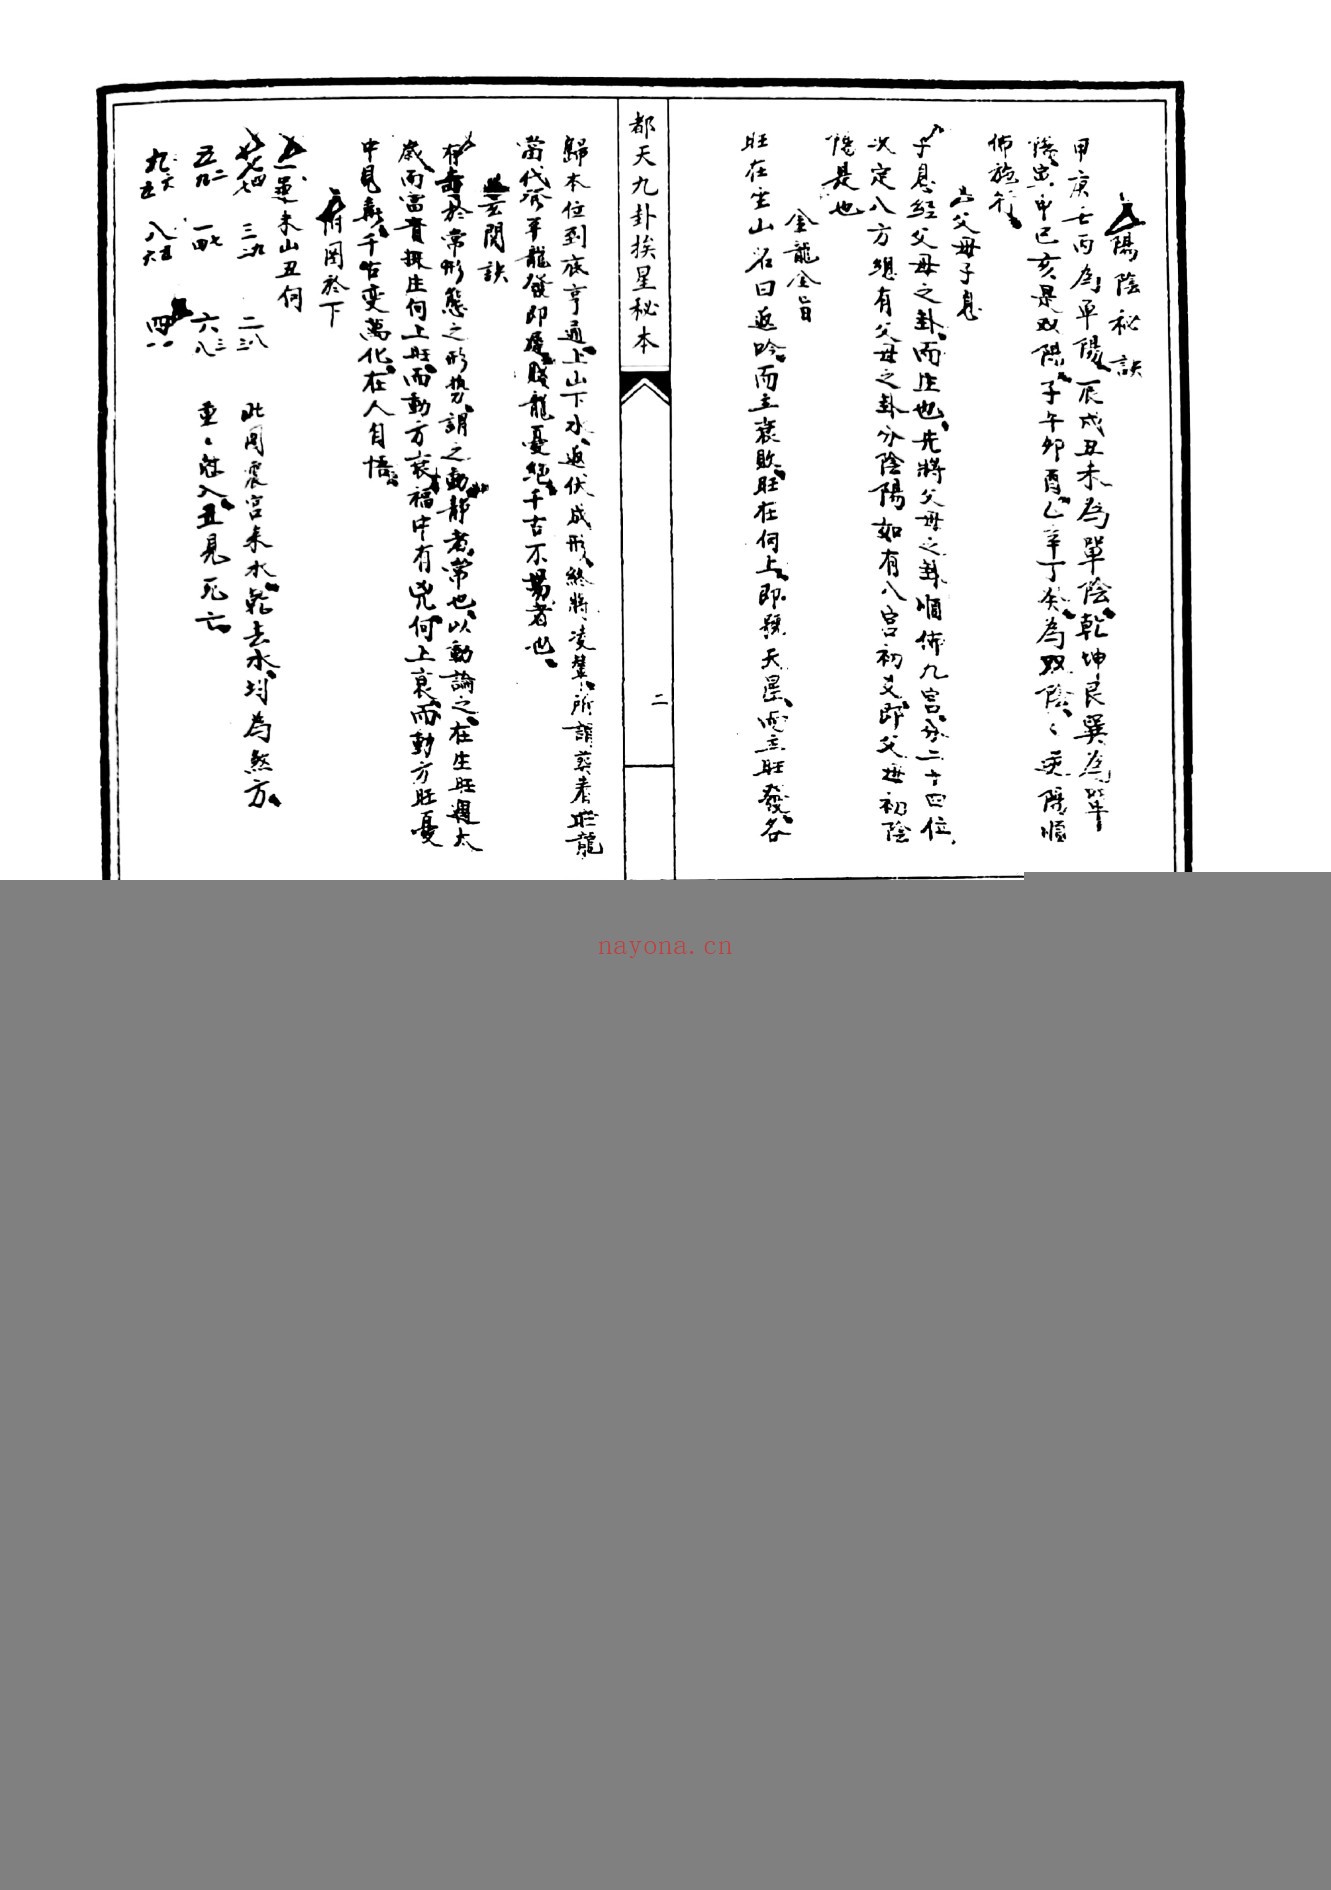 陽陰秘訣
甲庚壬丙為單陽、辰戌丑未為單陰、乾坤艮巽為單
陽、寅申巳亥是双陽、子午卯酉乙辛丁癸為双陰、
佈旋行、
父母子息
子息經父母之卦、而生也、先將父母之卦順佈九宮、分二十四位、
次定八方總有父母之卦分陰陽如有八宮初爻、即父母初陰
是也
金龍全旨
旺在坐山名曰返吟、而主衰敗、旺在何上、即號天星、而主旺發、各
都天九卦挨星秘本
二
歸本位到底亨通、上山下水、返伏成形、終將凌替、所謂葬着旺龍
當代發平龍發即遲賤龍憂絕、千古不易者也、
玄関訣
於常形態之形勢、謂之動、靜者、常也、以動論之、在生旺遇太
歲、而富貴生何上旺、而動方衰、福中有兇、何上衰、而動方旺憂
中見、千古變萬化、在人自悟、
附図於下
運未山丑何
四七 三九 二八
五二九 一七四 六三八
九六五 八五六 四
此図震宮来水、乾去水、均為煞方、
重重入丑見死亡、
nayona.cn